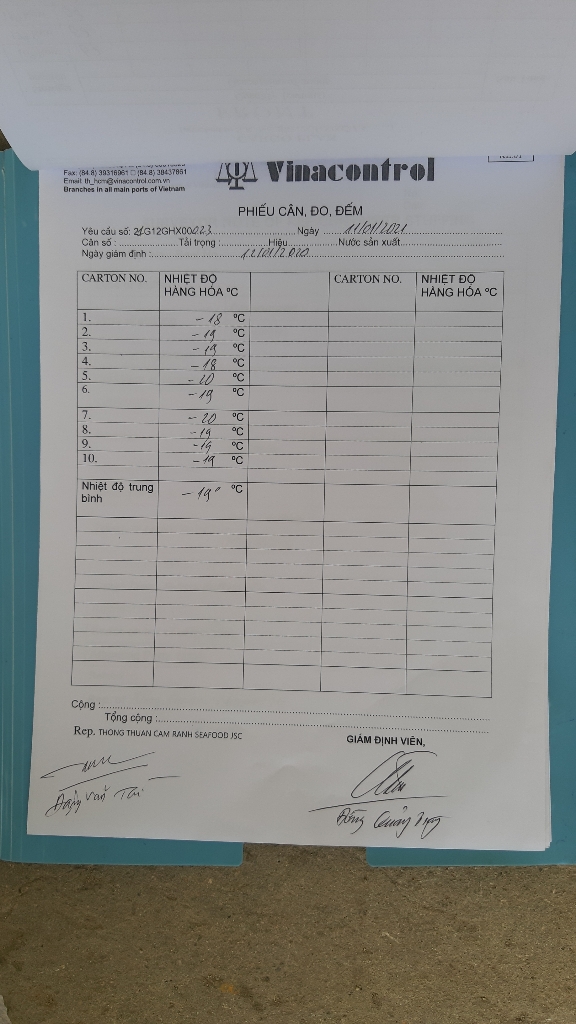 Fax: (84.8) 39316961 □ (84.8) 38437861
Email: th_hcm@vinacontrol.com.vn
Branches in all main ports of Vietnam
Vinacontrol
PHIẾU CÂN, ĐO, ĐẾM
Yêu cầu số: 21G12GHX00023 Ngày 11/01/2021
Cân số : Tải trọng : Hiệu Nước sản xuất
Ngày giám định : 12/01/2020
CARTON NO. NHIỆT ĐỘ HÀNG HÓA ºC CARTON NO. NHIỆT ĐỘ HÀNG HÓA ºC
1. -18 ºC
2. -19 ºC
3. -19 ºC
4. -18 ºC
5. -20 ºC
6. -19 ºC
7. -20 ºC
8. -19 ºC
9. -19 ºC
10. -19 ºC
Nhiệt độ trung bình -19° ºC
Cộng :
Tổng cộng :
Rep. THONG THUAN CAM RANH SEAFOOD JSC
GIÁM ĐỊNH VIÊN,
Văn Thi
Quang